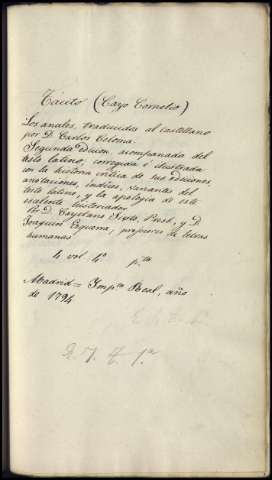 Tácito (Cayo Cornelio)
Los anales, traducidos al castellano
por D. Carlos Coloma.
Segunda edicion acompañada del
testo latino, corregida é ilustrada
con la historia crítica de sus ediciones,
anotaciones, índices, variantes del
testo latino, y la apología de este
escelente historiador
Por D. Cayetano Sixto, Presb. y D.
Joaquin Ezquerra, profesores de letras
humanas
4 vol. 4º pta
Madrid = Impta Real, año
de 1794